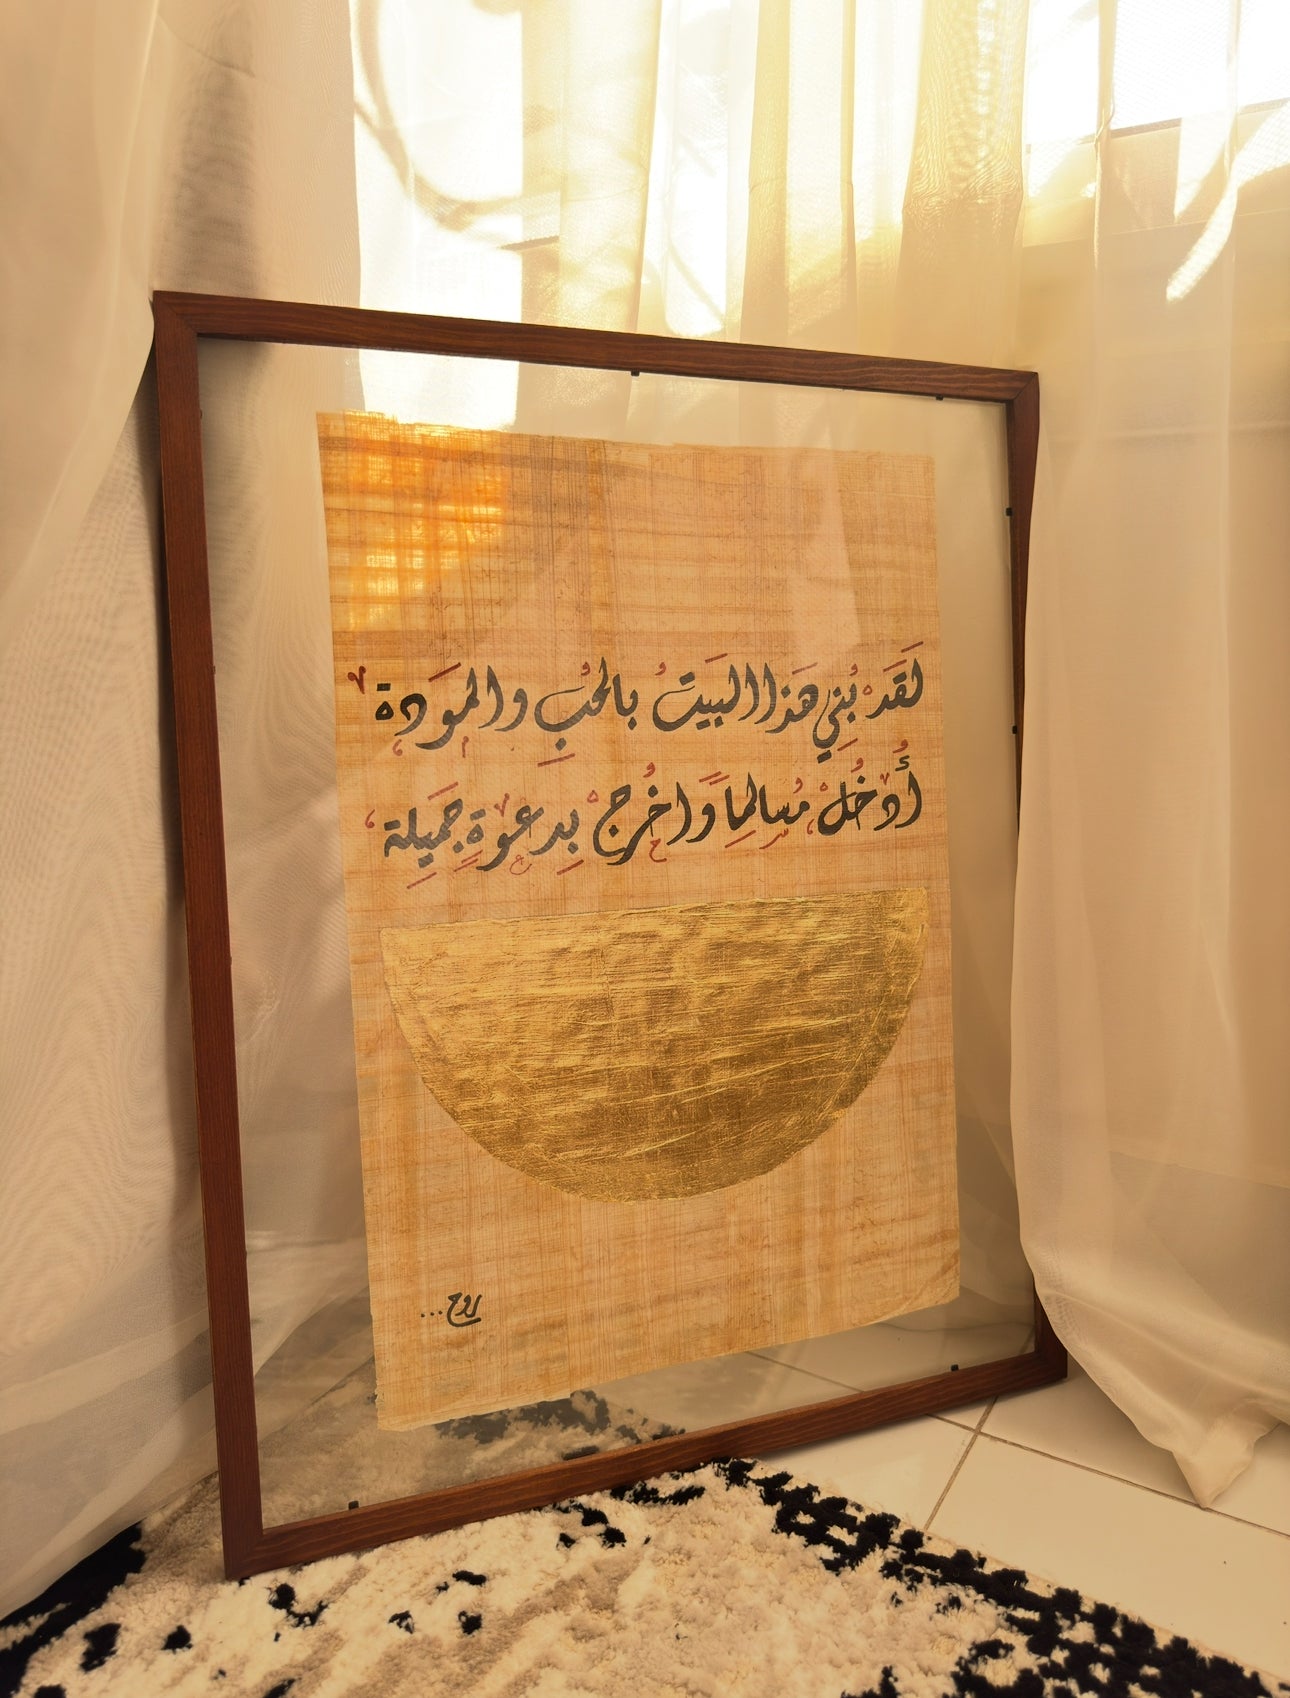 لَقَدْ بُنِي هَذا البَيتُ بالحُبِ والموَدة
أُدخُلْ مُسالماً وَاخُرجْ بِدعوةٍ جَمَيِلة
روح...